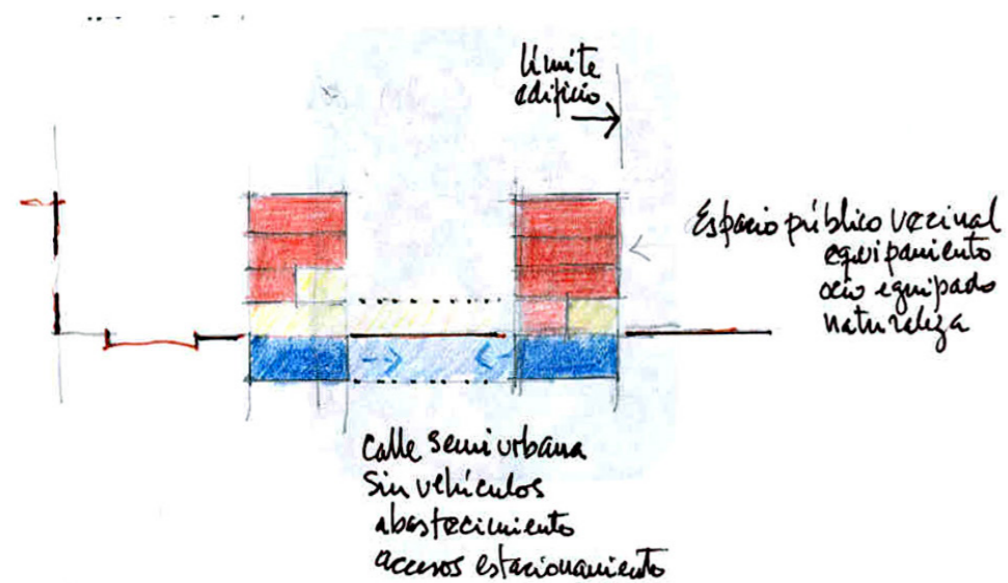 límite
edificio
Espacio público vecinal
equipamiento
ocio equipado
naturaleza
Calle semiurbana
Sin vehículos
abastecimiento
accesos estacionamiento